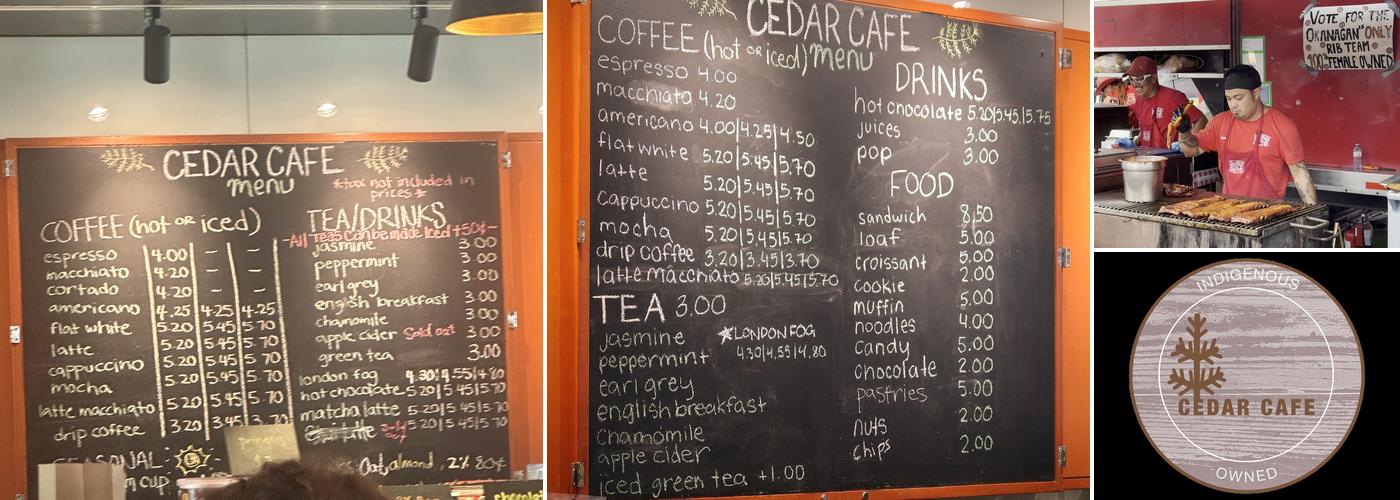 CEDAR CAFE
menu
*tax not included in
prices*
COFFEE (hot or iced)
espresso 4.00 – –
macchiato 4.20 – –
cortado 4.20
americano 4.25 4.25 4.25
flat white 5.20 5.45 5.70
latte 5.20 5.45 5.70
cappuccino 5.20 5.45 5.70
mocha 5.20 5.45 5.70
latte macchiato 5.20 5.45 5.70
drip coffee 3.20 3.45 3.70
SEASONAL:
cup
TEA/DRINKS
-All Teas Can be made Iced +50¢-
jasmine 3.00
peppermint 3.00
earl grey 3.00
english breakfast 3.00
chamomile 3.00
apple cider Sold out 3.00
green tea 3.00
london fog 4.30|4.55|4.80
hot chocolate 5.20|5.45|5.70
matcha latte 5.20|5.45|5.70
5.20|5.45|5.70
Oat, almond, 2% 80¢
CEDAR CAFE
menu
COFFEE (hot or iced)
espresso 4.00
macchiato 4.20
americano 4.00|4.25|4.50
flat white 5.20|5.45|5.70
latte 5.20|5.45|5.70
cappuccino 5.20|5.45|5.70
mocha 5.20|5.45|5.70
drip coffee 3.20|3.45|3.70
latte macchiato 5.20|5.45|5.70
TEA 3.00
jasmine
peppermint
earl grey
english breakfast
chamomile
apple cider
iced green tea +1.00
LONDON FOG
4.30|4.55|4.80
DRINKS
hot chocolate 5.20|5.45|5.75
juices 3.00
pop 3.00
FOOD
sandwich 8.50
loaf 5.00
croissant 2.00
cookie
muffin 5.00
noodles 4.00
candy 5.00
chocolate 2.00
pastries 5.00
nuts 2.00
chips 2.00
VOTE FOR THE
OKANAGAN "ONLY
RIB TEAM
100% FEMALE OWNED
INDIGENOUS
CEDAR CAFE
OWNED